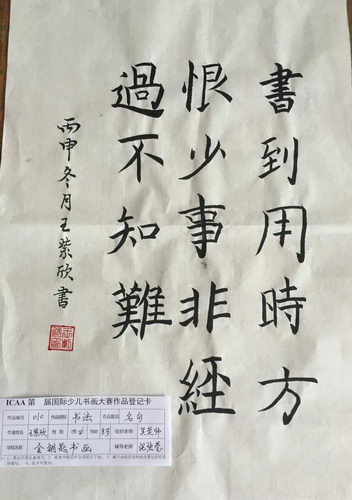 書到用時方
恨少事非經
過不知難
丙申冬月王紫欣書
ICAA 第 届国际少儿书画大赛作品登记卡
作品编号 010 作品类别 书法 作品题目 名句
作者姓名 王紫欣 性别 女 年龄 8岁 组织老师
学校名称 金钥匙书画 辅导老师